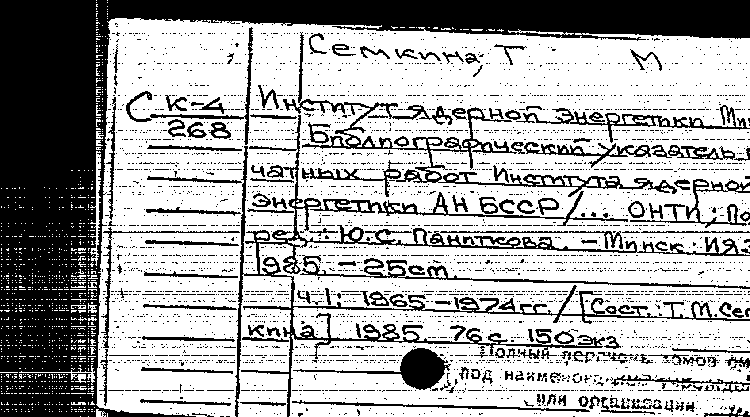 Семкина, Т М
С к-4 Институт ядерной энергетики Мин
268 Библиографический указатель п
чатных работ Института ядерной
энергетики АН БССР /... ОНТИ; По
ред.: Ю.С. Паниткова. - Минск: ИЯЭ
1985. - 25cm.
ч.1: 1965-1974гг. / [Сост.: Т.М.Сем
кина] 1985. 76 с. 150экз
Полный перечень томов см
под наименованием учрежде
или организации